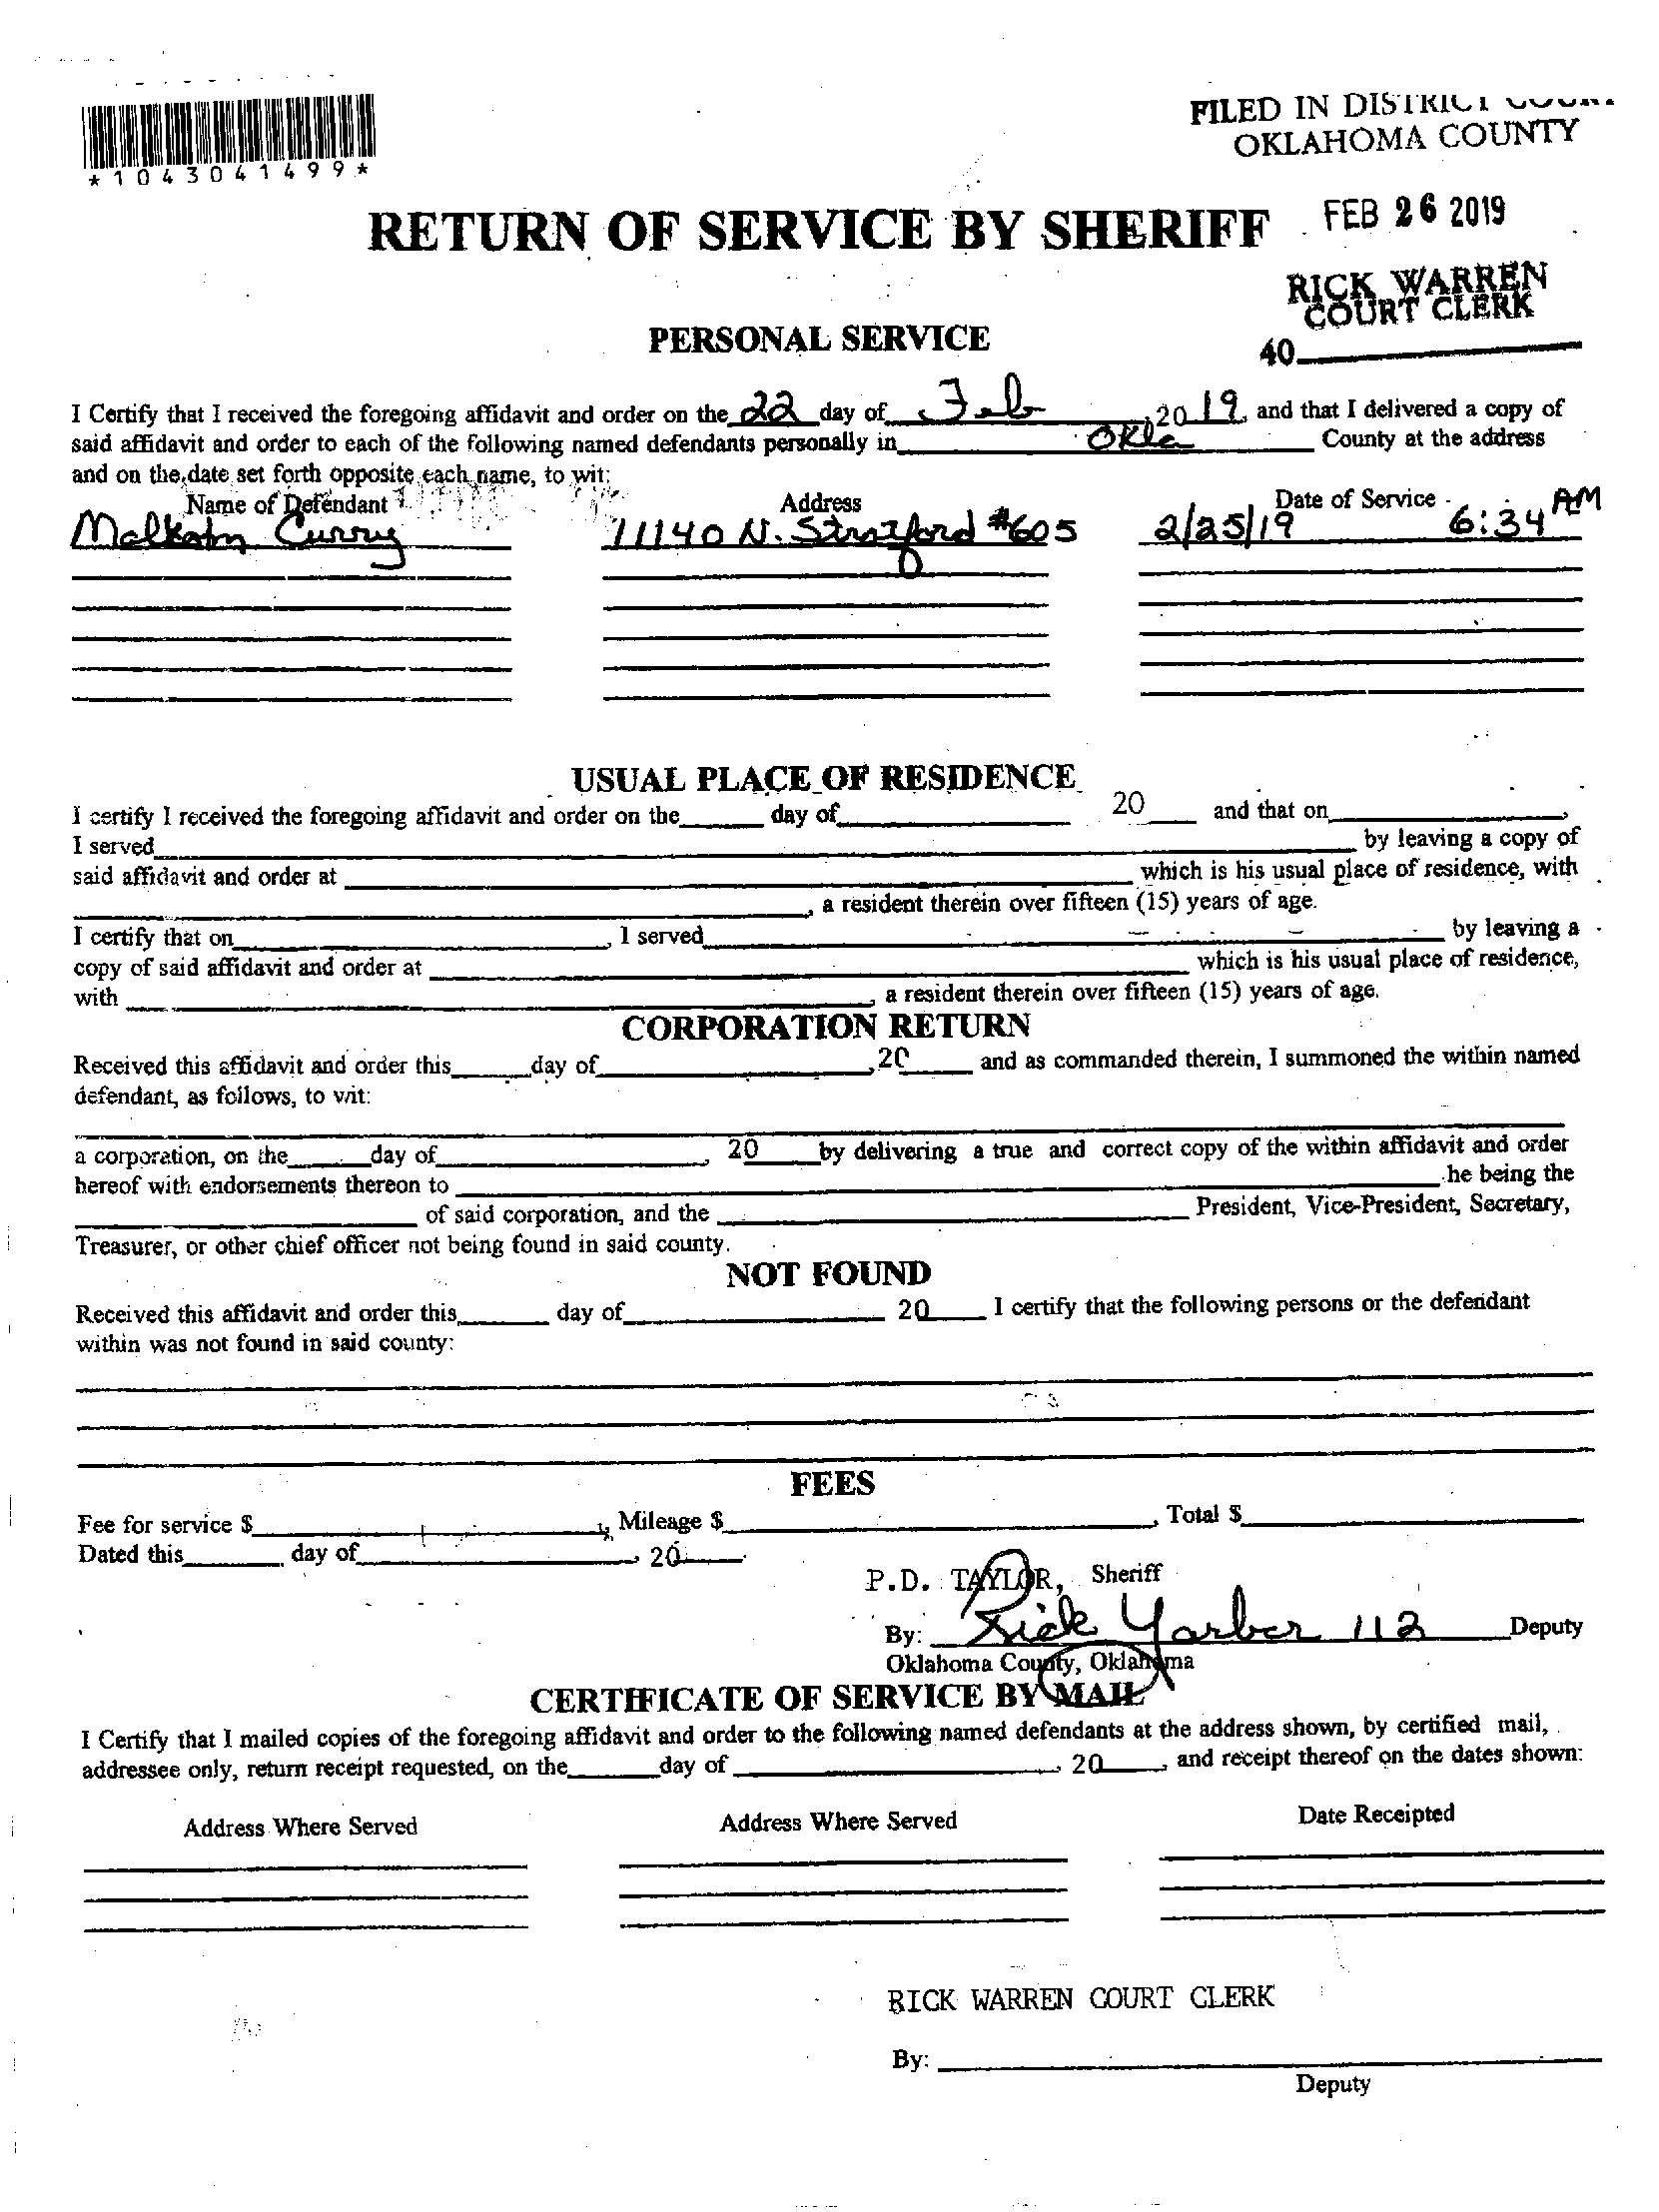 *1043041499*
FILED IN DISTRICT COURT
OKLAHOMA COUNTY
FEB 26 2019
RICK WARREN
COURT CLERK
40
RETURN OF SERVICE BY SHERIFF
PERSONAL SERVICE
I Certify that I received the foregoing affidavit and order on the 22 day of Feb ,20 19, and that I delivered a copy of
said affidavit and order to each of the following named defendants personally in Okla County at the address
and on the date set forth opposite each name, to wit:
Name of Defendant Address Date of Service
Curry 11140 N. Stratford #605 2/25/19 6:34 AM
USUAL PLACE OF RESIDENCE
I certify I received the foregoing affidavit and order on the day of 20 and that on ,
I served by leaving a copy of
said affidavit and order at which is his usual place of residence, with
, a resident therein over fifteen (15) years of age.
I certify that on , I served by leaving a
copy of said affidavit and order at which is his usual place of residence,
with , a resident therein over fifteen (15) years of age.
CORPORATION RETURN
Received this affidavit and order this day of ,20 and as commanded therein, I summoned the within named
defendant, as follows, to wit:
a corporation, on the day of , 20 by delivering a true and correct copy of the within affidavit and order
hereof with endorsements thereon to he being the
of said corporation, and the President, Vice-President, Secretary,
Treasurer, or other chief officer not being found in said county.
NOT FOUND
Received this affidavit and order this day of 20 I certify that the following persons or the defendant
within was not found in said county:
FEES
Fee for service $ , Mileage $ , Total $
Dated this day of , 20
P.D. TAYLOR, Sheriff
By: Rick Yarber 112 Deputy
Oklahoma County, Oklahoma
CERTIFICATE OF SERVICE BY MAIL
I Certify that I mailed copies of the foregoing affidavit and order to the following named defendants at the address shown, by certified mail,
addressee only, return receipt requested, on the day of , 20 , and receipt thereof on the dates shown:
Address Where Served Address Where Served Date Receipted
RICK WARREN COURT CLERK
By:
Deputy